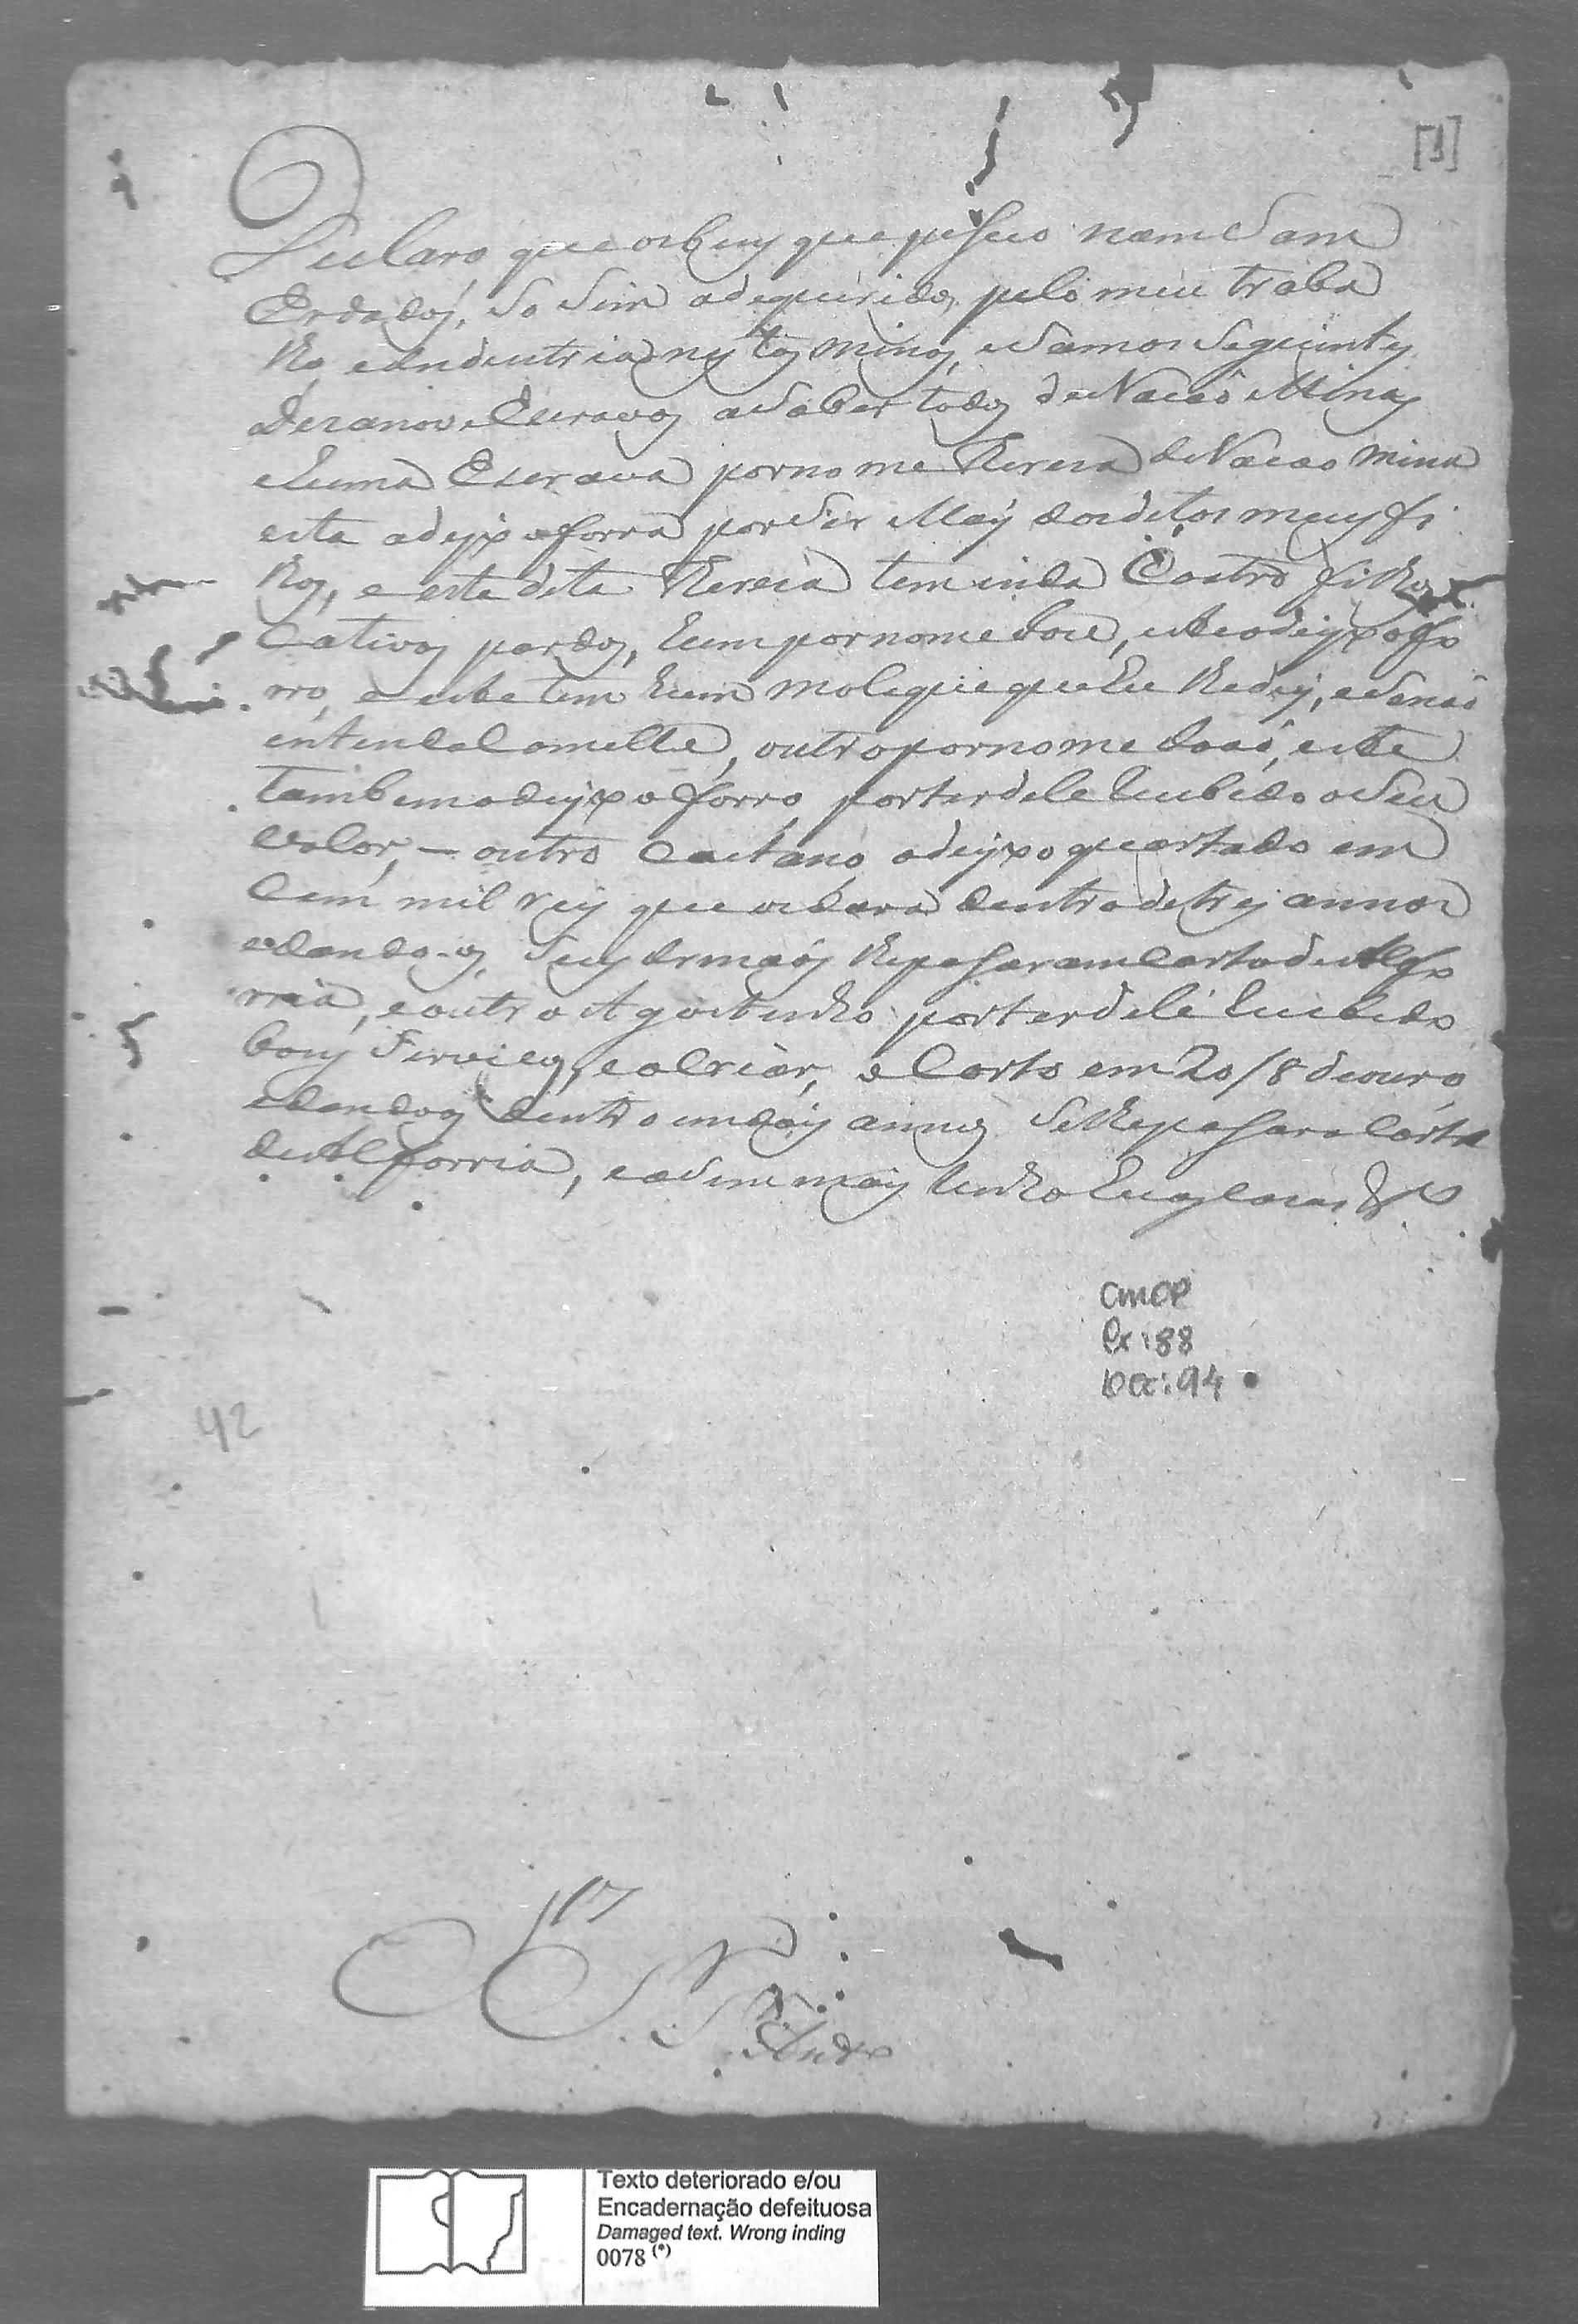 [1]
Declaro que os bens que pesuo nam Sam
Erdados, So Sim adequeridos pelo meu traba
lho, e Endustria nestas minas, e Sam os Seguintes
Dezanove Escravos a Saber todos de Nacaõ Minas
e huma Escrava por nome Thereza de Nacao mina
esta a deyxo forra por Ser May dos ditos meus fi
lhos, e esta dita Thereza tem inda Coatro filhos
Cativos pardos, hum por nome Joze, este o deyxo fo
rro, e este tem hum moleque que Eu lhe dey, e Senaõ
entenda Com elle, outro por nome Joaõ, este
tambem o deyxo forro por ter dele Recebido o Seu
valor, — outro Caetano o deyxo quartado em
Cem mil reis que os dara dentro de tres annos
e dando-os, Seus Irmaõs lhe pasaram Carta de Alfo
rria, e outro Agostinho por ter dele Recebido
bons Servicos, e o Criar, o Corto em 20/8 de ouro
e dandoos dentro em dois annos Se lhe pasara Carta
de Alforria, e aSim mais tenho humas Casas
CMOP
Cx: 88
Doc: 94
42
Texto deteriorado e/ou
Encadernação defeituosa
Damaged text. Wrong inding
0078 (*)